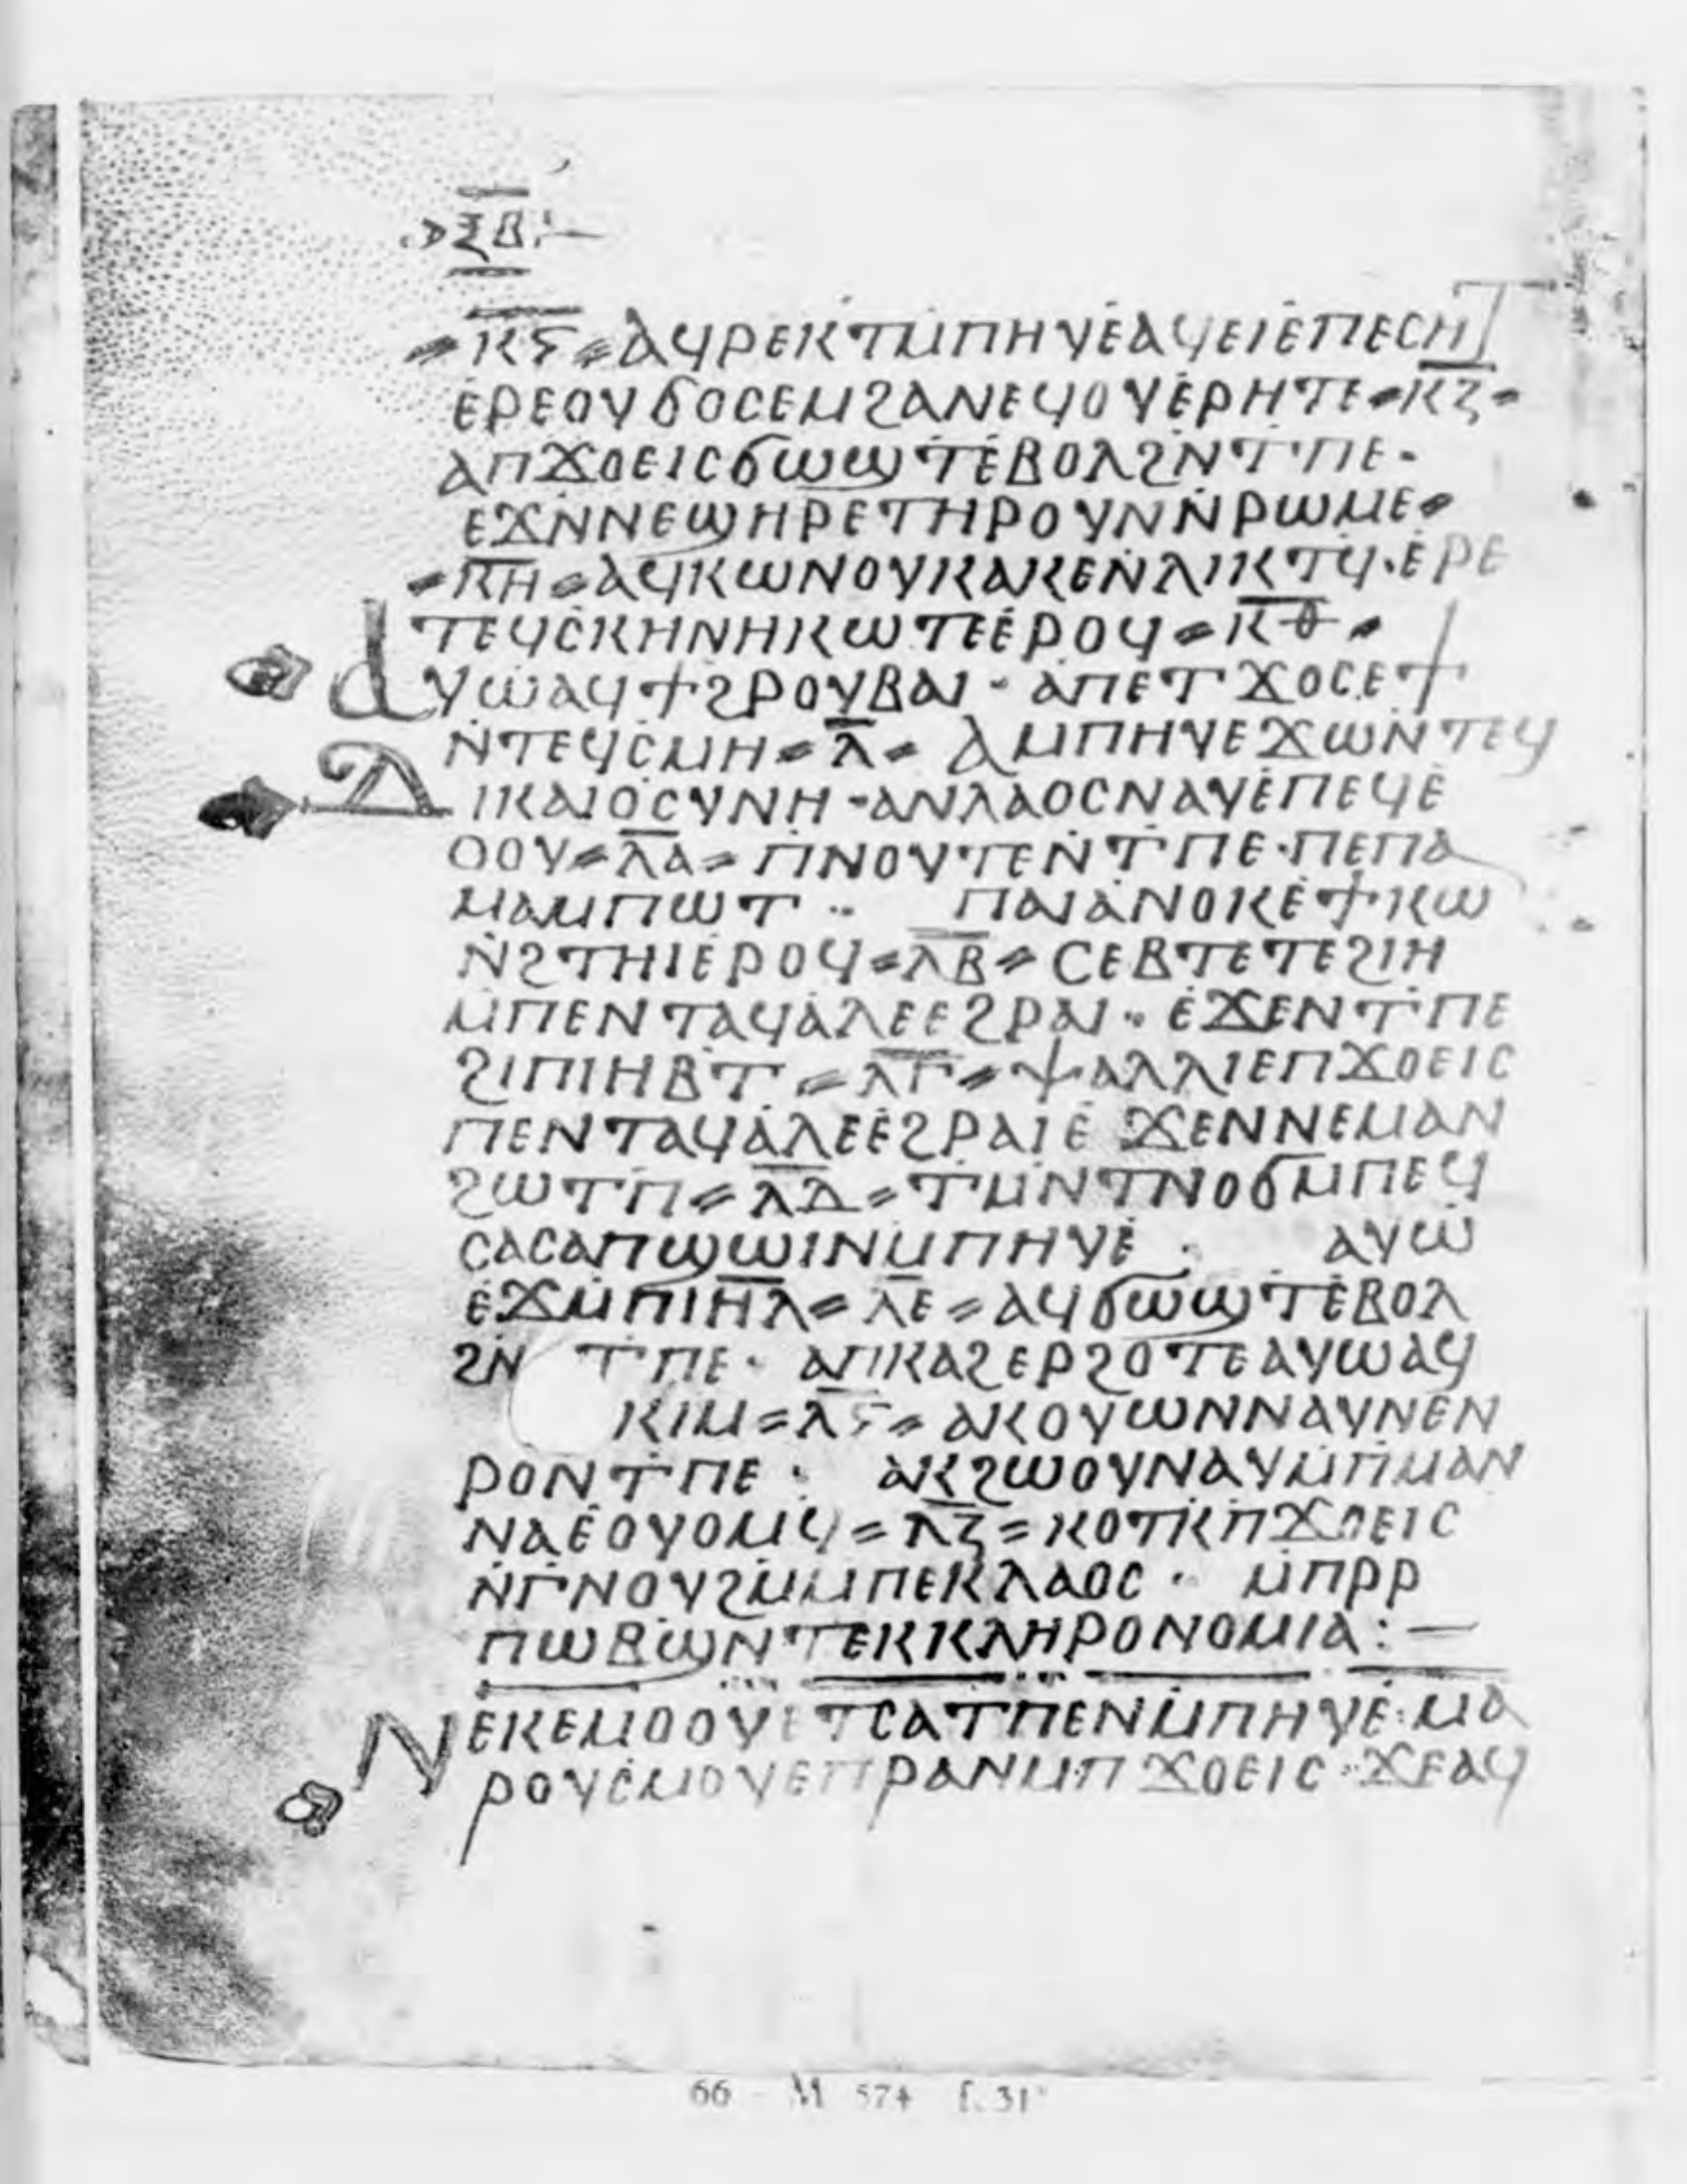 ⲝⲃ:—
ⲕⲋ ⲁϥⲣⲉⲕⲧⲙ̇ⲡⲏⲩⲉ̇ⲁϥⲉⲓⲉ̇ⲡⲉⲥⲏⲧ
ⲉ̇ⲣⲉⲟⲩϭⲟⲥⲉⲙϩⲁⲛⲉϥⲟⲩⲉ̇ⲣⲏⲧⲉ ⲕⲍ
ⲁⲡϫⲟⲉⲓⲥϭⲱϣⲧⲉ̇ⲃⲟⲗϩⲛ̇ⲧ̇ⲡⲉ·
ⲉϫⲛ̇ⲛⲉϣⲏⲣⲉⲧⲏⲣⲟⲩⲛⲛ̇ⲣⲱⲙⲉ
ⲕⲏ ⲁϥⲕⲱⲛⲟⲩⲕⲁⲕⲉⲛ̇ⲗⲓⲕⲧϥ·ⲉ̇ⲣⲉ
ⲧⲉϥⲥ̇ⲕⲏⲛⲏⲕⲱⲧⲉⲉ̇ⲣⲟϥ ⲕⲑ
ⲁⲩⲱⲁϥϯϩⲣⲟⲩⲃⲁⲓ· ⲁⲡⲉⲧϫⲟⲥⲉϯ
ⲛ̇ⲧⲉϥⲥ̇ⲙⲏ ⲗ ⲁⲙⲡⲏⲩⲉϫⲱⲛ̇ⲧⲉϥ
ⲇⲓⲕⲁⲓⲟⲥⲩⲛⲏ·ⲁⲛⲗⲁⲟⲥⲛⲁⲩⲉ̇ⲡⲉϥⲉ̇
ⲟⲟⲩ ⲗⲁ ⲡⲛⲟⲩⲧⲉⲛ̇ⲧ̇ⲡⲉ·ⲡⲉⲡⲁ
ⲙⲁⲙⲡⲱⲧ·· ⲡⲁⲓⲁ̇ⲛⲟⲕⲉ̇ϯⲕⲱ
ⲛ̇ϩⲧⲏⲓⲉ̇ⲣⲟϥ ⲗⲃ ⲥⲉⲃⲧⲉⲧⲉϩⲓⲏ
ⲙ̇ⲡⲉⲛⲧⲁϥⲁ̇ⲗⲉⲉϩⲣⲁⲓ·· ⲉ̇ϫⲉⲛⲧ̇ⲡⲉ
ϩⲓⲡⲓⲏⲃ̇ⲧ ⲗⲅ ⲯⲁⲗⲗⲓⲉⲡϫⲟⲉⲓⲥ
ⲡⲉⲛⲧⲁϥⲁ̇ⲗⲉⲉ̇ϩⲣⲁⲓⲉ̇ϫⲉⲛⲛⲉⲙⲁⲛ
ϩⲱⲧ̇ⲡ ⲗⲇ ⲧ̇ⲙⲛ̇ⲧⲛⲟϭⲙ̇ⲡⲉϥ
ⲥⲁⲥⲁⲡϣⲱⲓⲛⲙ̇ⲡⲏⲩⲉ̇ · ⲁⲩⲱ
ⲉ̇ϫⲙ̇ⲡⲓⲏⲗ ⲗⲉ ⲁϥϭⲱϣⲧⲉ̇ⲃⲟⲗ
ϩⲛ ⲧ̇ⲡⲉ· ⲁⲡⲕⲁϩⲉⲣϩⲟⲧⲉⲁⲩⲱⲁϥ
ⲕⲓⲙ ⲗⲋ ⲁⲕⲟⲩⲱⲛⲛⲁⲩⲛⲉⲛ
ⲣⲟⲛⲧ̇ⲡⲉ : ⲁⲕϩⲱⲟⲩⲛⲁⲩⲙ̇ⲡ̇ⲙⲁⲛ
ⲛⲁⲉ̇ⲟⲩⲟⲙϥ ⲗⲍ ⲕⲟⲧⲕ̇ⲡϫⲟⲉⲓⲥ
ⲛ̇ⲅ̇ⲛⲟⲩϩⲙ̇ⲙⲡⲉⲕⲗⲁⲟⲥ· ⲙ̇ⲡⲣⲣ
ⲡⲱⲃϣⲛ̇ⲧⲉⲕⲕⲗⲏⲣⲟⲛⲟⲙⲓⲁ:—
ⲛⲉⲕⲉⲙⲟⲟⲩⲉⲧⲥⲁⲧⲡⲉⲛⲙ̇ⲡⲏⲩⲉ·ⲙⲁ
ⲣⲟⲩⲥ̇ⲙⲟⲩⲉⲡⲣⲁⲛⲙ̇ⲡϫⲟⲉⲓⲥ·ϫⲉⲁϥ
66 - M 574 f. 31ᵛ